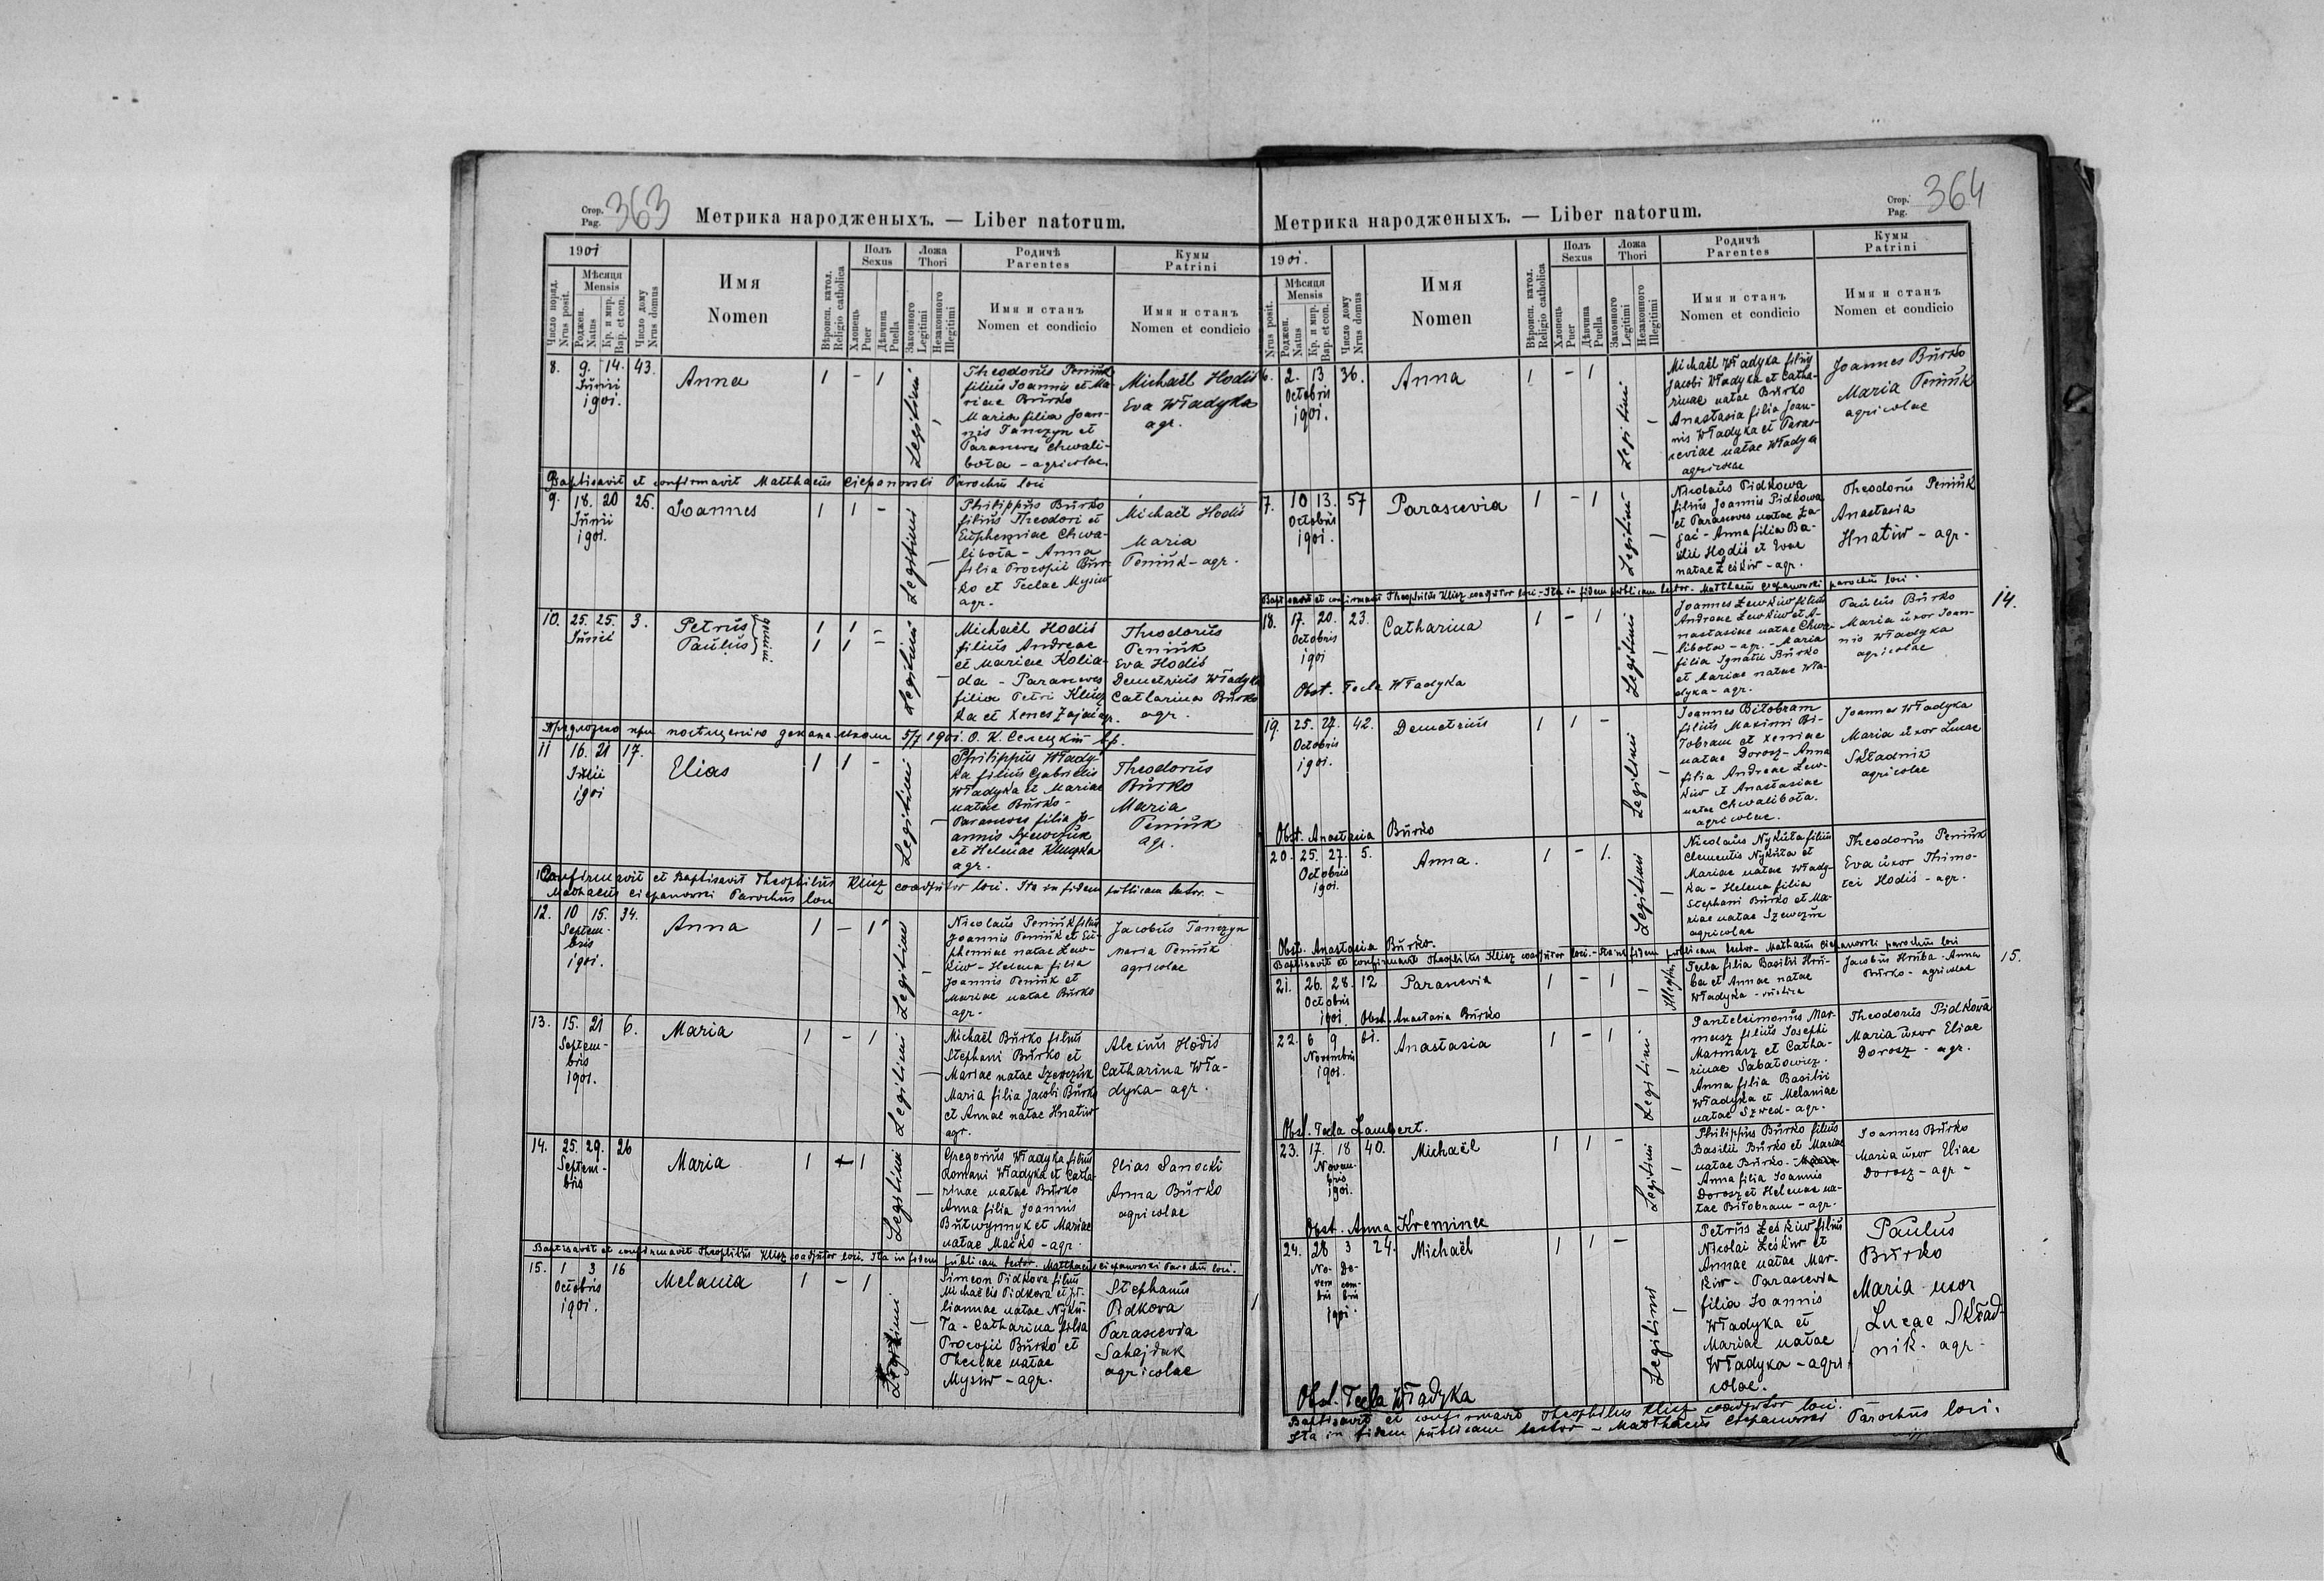 Стор. Pag. 363
Метрика народженыхъ. — Liber natorum.
1901
Имя
Nomen
Полъ
Sexus
Ложа
Thori
Родичѣ
Parentes
Кумы
Patrini
Число поряд.
Nrus posit.
Мѣсяця
Mensis
Роджен.
Natus
Кр. и мир.
Bap. et con.
Число дому
Nrus domus
Вѣроисп. катол.
Religio catholica
Хлопець
Puer
Дѣвчина
Puella
Законного
Legitimi
Незаконного
Illegitimi
Имя и станъ
Nomen et condicio
Имя и станъ
Nomen et condicio
8. 9. 14. 43.
Junii
1901.
Anna
1 - 1
Legitimi
Theodorus Peniuk
filius Joannis et Ma-
riae Burko
Maria filia Joan-
nis Tanczyn et
Parasceves Chwali-
bota - agricolae
Michaël Hodis
Eva Władyka
agr.
Baptisavit et confirmavit Matthaeus Ciepanowski Parochus loci
9. 18. 20 25.
Junii
1901.
Joannes
1 1 -
Legitimi
Philippus Burko
filius Theodori et
Euphemiae Chwa-
libota - Anna
filia Procopii Bur-
ko et Teclae Mysiw
agr.
Michaël Hodis
Maria
Peniuk - agr.
10. 25. 25. 3.
Junii
Petrus
Paulus
gemini
1 1 -
1 1 -
Legitimi
Michaël Hodis
filius Andreae
et Mariae Kolia-
da - Parasceves
filia Petri Klucz
ka et Xenes Zajac agr.
Theodorus
Peniuk
Eva Hodis
Demetrius Władyka
Catharina Burko
agr.
Предложено при посѣщенію декана школи 5/7 1901. О. К. Селецкій
11 16. 21 17.
Julii
1901
Elias
1 1 -
Legitimi
Philippus Włady-
ka filius Gabrielis
Władyka et Mariae
natae Burko -
Parasceves filia Jo-
annis Szewczuk
et Helenae Kluczka
agr.
Theodorus
Burko
Maria
Peniuk
agr.
Confirmavit et Baptisavit Theophilus Klisz coadjutor loci. Ita in fidem publicam testor. -
Mathaeus Ciepanowski Parochus loci
12. 10 15. 34.
Septem-
bris
1901.
Anna
1 - 1
Legitimi
Nicolaus Peniuk filius
Joannis Peniuk et Eu-
phemiae natae Lew-
kiw - Helena filia
Joannis Peniuk et
Mariae natae Burko
agr.
Jacobus Tanczyn
Maria Peniuk
agricolae
13. 15. 21 6.
Septem-
bris
1901.
Maria
1 - 1
Legitimi
Michaël Burko filius
Stephani Burko et
Mariae natae Szewczuk
Maria filia Jacobi Burko
et Annae natae Hnatiw
agr.
Alexius Hodis
Catharina Wła-
dyka - agr.
14. 25. 29. 26
Septem-
bris
Maria
1 1
Legitimi
Gregorius Władyka filius
Romani Władyka et Catha-
rinae natae Burko
Anna filia Joannis
Butwynnyk et Mariae
natae Maćko - agr
Elias Sanocki
Anna Burko
agricolae
Baptisavit et confirmavit Theophilus Klisz coadjutor loci. Ita in fidem publicam testor. Matthaeus Ciepanowski Parochus loci.
15. 1 3 16
Octobris
1901.
Melania
1 - 1
Legitimi
Simeon Pidkova filius
Michaëlis Pidkova et Ju-
liannae natae Nyku-
ta - Catharina filia
Procopii Burko et
Theclae natae
Mysiw - agr.
Stephanus
Pidkova
Parascevia
Sahajdak
agricolae
Стор. Pag. 364
Метрика народженыхъ. — Liber natorum.
1901.
Имя
Nomen
Полъ
Sexus
Ложа
Thori
Родичѣ
Parentes
Кумы
Patrini
Nrus posit.
Мѣсяця
Mensis
Роджен.
Natus
Кр. и мир.
Bap. et con.
Число дому
Nrus domus
Вѣроисп. катол.
Religio catholica
Хлопець
Puer
Дѣвчина
Puella
Законного
Legitimi
Незаконного
Illegitimi
Имя и станъ
Nomen et condicio
Имя и станъ
Nomen et condicio
6. 2. 13 36.
Octobris
1901.
Anna
1 - 1
Legitimi
Michaël Władyka filius
Jacobi Władyka et Catha-
rinae natae Burko
Anastasia filia Joan-
nis Władyka et Paras-
ceviae natae Władyka
agricolae
Joannes Burko
Maria Peniuk
agricolae
7. 10 13. 57
Octobris
1901.
Parascevia
1 - 1
Legitimi
Nicolaus Pidkowa
filius Joannis Pidkowa
et Parasceves natae Za-
jać - Anna filia Ba-
silii Hodis et Evae
natae Leskiw - agr.
Theodorus Peniuk
Anastasia
Hnatiw - agr.
Baptisavit et confirmavit Theophilus Klisz coadjutor loci - Ita in fidem publicam testor. Matthaeus Ciepanowski parochus loci.
14.
18. 17. 20. 23.
Octobris
1901
Catharina
1 - 1
Legitimi
Joannes Lewkiw filius
Andreae Lewkiw et A-
nastasiae natae Chwa-
libota - agr. - Maria
filia Ignatii Burko
et Mariae natae Wła-
dyka - agr.
Paulus Burko
Maria uxor Joan-
nis Władyka
agricolae
Obst. Tecla Władyka
19. 25. 27. 42.
Octobris
1901.
Demetrius
1 1 -
Legitimi
Joannes Biłobram
filius Maximi Bi-
łobram et Xeniae
natae Dorosz - Anna
filia Andreae Lew-
kiw et Anastasiae
natae Chwalibota.
agricolae.
Joannes Władyka
Maria uxor Lucae
Składnik
agricolae
Obst. Anastasia Burko
20. 25. 27. 5.
Octobris
1901.
Anna.
1 - 1.
Legitimi
Nicolaus Nykuta filius
Clementis Nykuta et
Mariae natae Włady-
ka - Helena filia
Stephani Burko et Ma-
riae natae Szewczuk
agricolae
Theodorus Peniuk
Eva uxor Thimo-
tei Hodis - agr.
Obst. Anastasia Burko.
Baptisavit et confirmavit Theophilus Klisz coadjutor loci. - Ita in fidem publicam testor - Mathaeus Ciepanowski parochus loci
15.
21. 26. 28. 12
Octobris
1901.
Parascevia
1 - 1
Illegitimi
Tecla filia Basilii Hru-
ba et Annae natae
Władyka - rustica
Jacobus Hruba - Anna
Burko - agricolae
Obst. Anastasia Burko
22. 6. 9 61.
Novembris
1901.
Anastasia
1 - 1
Legitimi
Panteleimonius Mar-
masz filius Josephi
Marmasz et Catha-
rinae Sabatowicz.
Anna filia Basilii
Władyka et Melaniae
natae Szwed - agr.
Theodorus Pidkova
Maria uxor Eliae
Dorosz - agr.
Obst. Tecla Lambert.
23. 17. 18 40.
Novem-
bris
1901.
Michaël
1 1 -
Legitimi
Philippus Burko filius
Basilii Burko et Mariae
natae Burko.
Anna filia Joannis
Dorosz et Helenae na-
tae Biłobram - agr.
Joannes Burko
Maria uxor Eliae
Dorosz - agr -
Obst. Anna Kreminec
24. 28 3 24.
No- De-
vem cem-
bris bris
1901.
Michaël
1 1 -
Legitimi
Petrus Leskiw filius
Nicolai Leskiw et
Annae natae Mar-
kiw - Parascevia
filia Joannis
Władyka et
Mariae natae
Władyka - agri
colae.
Paulus
Burko
Maria uxor
Lucae Skład-
nik - agr.
Obst. Tecla Władyka
Baptisavit et confirmavit Theophilus Klisz coadjutor loci.
Ita in fidem publicam testor - Matthaeus Ciepanowski Parochus loci.